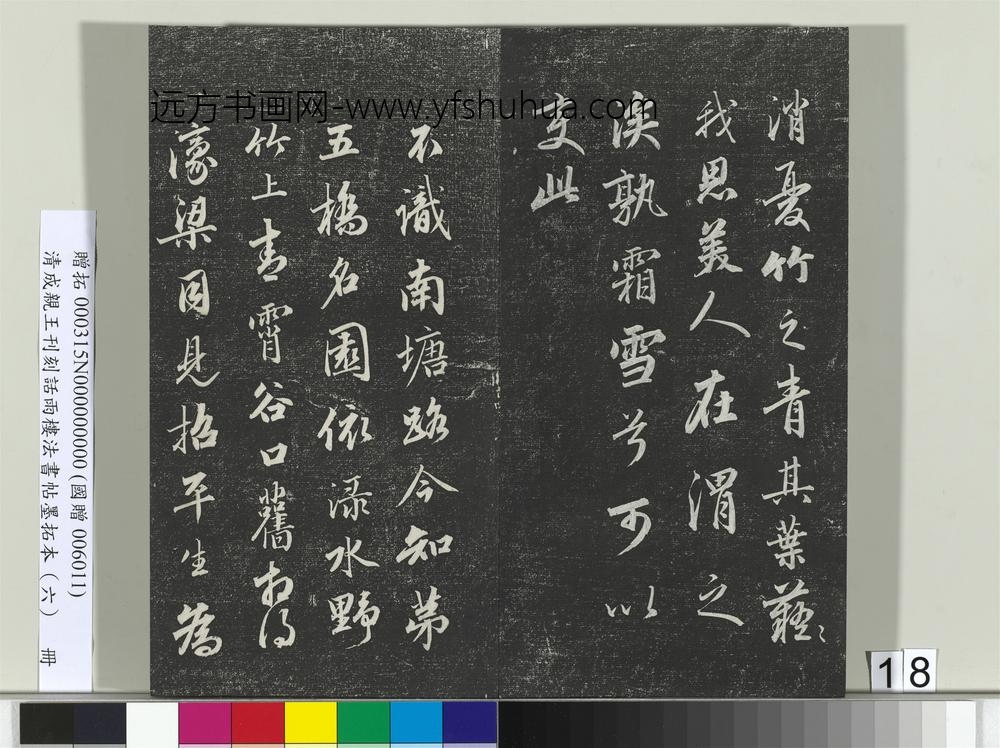 消憂竹之青其葉蕤〻
我思美人在渭之
涘孰霜雪兮可以
友此
不識南塘路今知第
五橋名園依渌水野
竹上青霄谷口舊相得
濠梁同見招平生為
远方书画网-www.yfshuhua.com
贈拓 000315N000000000 (國贈 006011)
清成親王刊刻話雨樓法書帖墨拓本（六） 冊
18